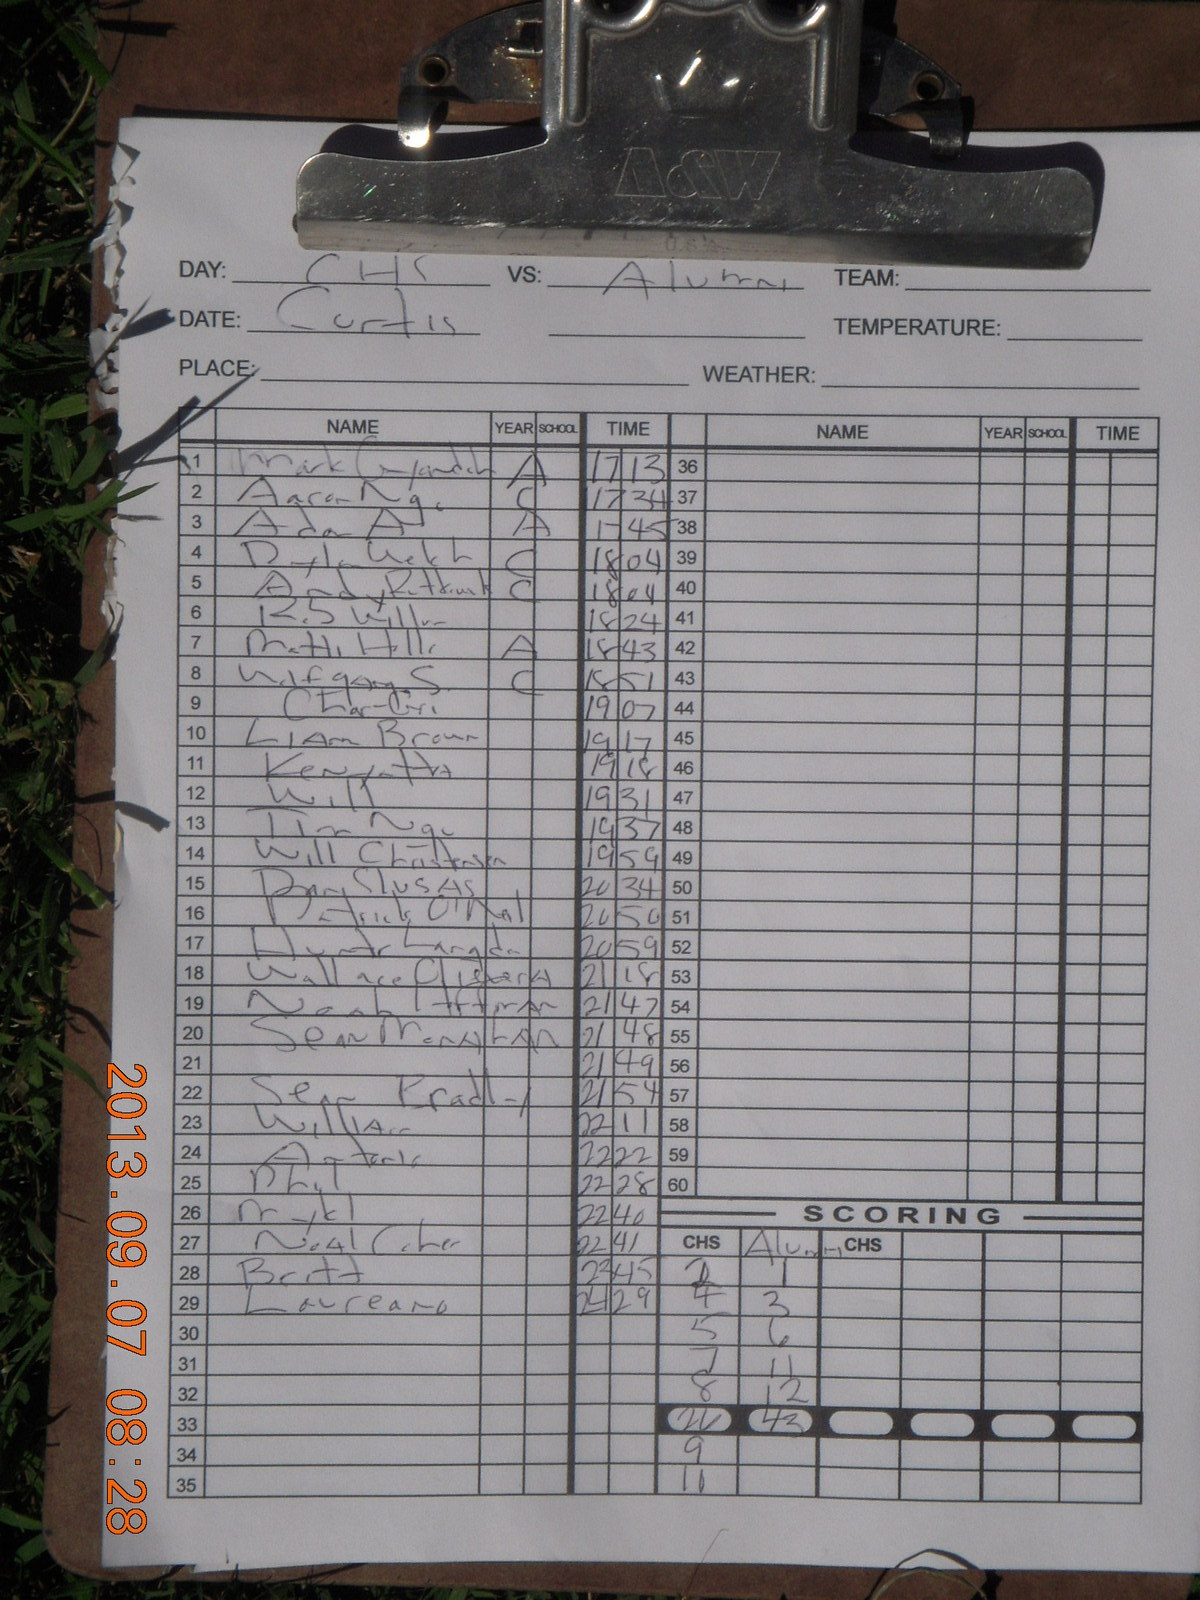 A&W
DAY: CHS VS: Alumni TEAM:
DATE: Curtis TEMPERATURE:
PLACE: WEATHER:
NAME YEAR SCHOOL TIME NAME YEAR SCHOOL TIME
1 Mark A 17 13 36
2 Aaron Ngu C 17 34 37
3 Adam A 17 45 38
4 Dylan Welch C 18 04 39
5 Andy C 18 04 40
6 18 24 41
7 Matt Hills A 18 43 42
8 Wolfgang S. C 18 51 43
9 19 07 44
10 Liam Brown 19 17 45
11 Kenyatta 19 18 46
12 Will 19 31 47
13 Tim Ngu 19 37 48
14 Will Christensen 19 59 49
15 20 34 50
16 Patrick O'Neil 20 50 51
17 Hunter 20 59 52
18 Wallace 21 18 53
19 Noah 21 47 54
20 Sean Monaghan 21 48 55
21 21 49 56
22 Sean Bradley 21 54 57
23 William 22 11 58
24 22 22 59
25 Phil 22 28 60
26 22 40 SCORING
27 Noal 22 41 CHS Alumni CHS
28 Britt 23 45 2 1
29 Laureano 24 29 4 3
30 5 6
31 7 11
32 8 12
33 26 43
34 9
35 11
2013.09.07 08:28